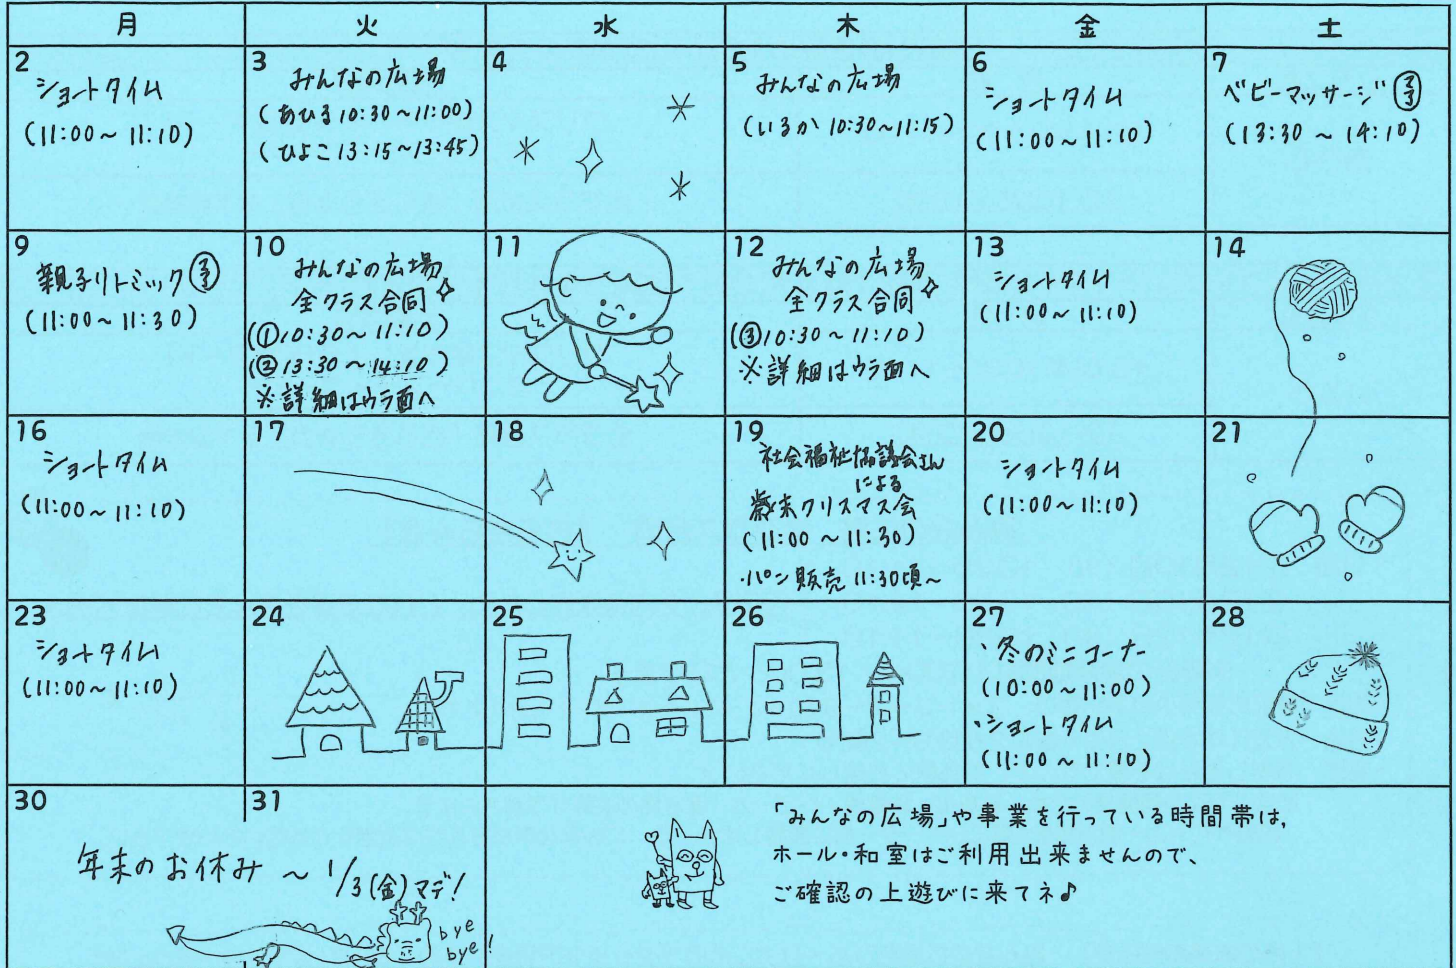 月 火 水 木 金 土
2
ショートタイム
(11:00～11:10)
3
みんなの広場
(あひる10:30～11:00)
(ひよこ13:15～13:45)
4
5
みんなの広場
(いるか 10:30～11:15)
6
ショートタイム
(11:00～11:10)
7
ベビーマッサージ
(13:30～14:10)
9
親子リトミック
(11:00～11:30)
10
みんなの広場
全クラス合同
(①10:30～11:10)
(②13:30～14:10)
※詳細はウラ面へ
11
12
みんなの広場
全クラス合同
(③10:30～11:10)
※詳細はウラ面へ
13
ショートタイム
(11:00～11:10)
14
16
ショートタイム
(11:00～11:10)
17
18
19
社会福祉協議会さん
による
歳末クリスマス会
(11:00～11:30)
・パン販売 11:30頃～
20
ショートタイム
(11:00～11:10)
21
23
ショートタイム
(11:00～11:10)
24
25
26
27
・冬のミニコーナー
(10:00～11:00)
・ショートタイム
(11:00～11:10)
28
30
31
年末のお休み ～ 1/3(金)マデ!
bye
bye!
「みんなの広場」や事業を行っている時間帯は、
ホール・和室はご利用出来ませんので、
ご確認の上遊びに来てネ♪